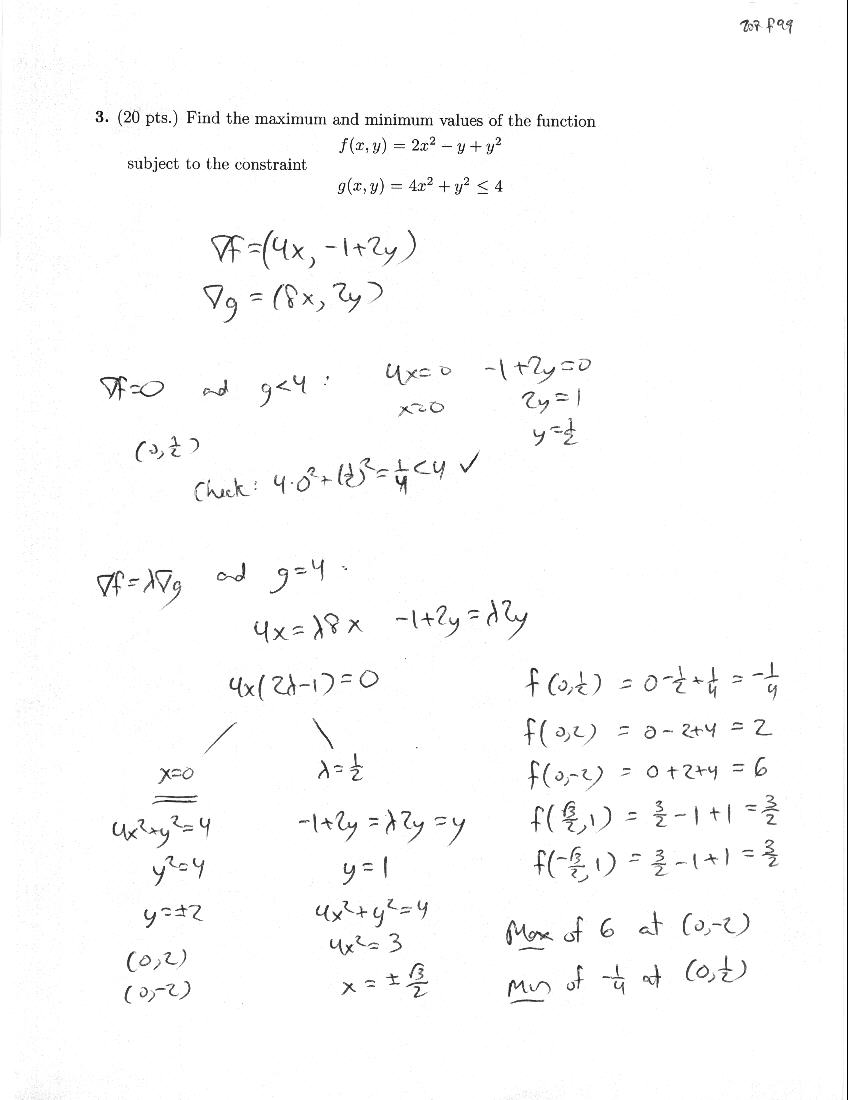 207 f99
3. (20 pts.) Find the maximum and minimum values of the function
f(x, y) = 2x² − y + y²
subject to the constraint
g(x, y) = 4x² + y² ≤ 4
∇f = (4x, -1+2y)
∇g = (8x, 2y)
∇f=0 and g<4 : 4x=0 -1+2y=0
x=0 2y=1
y=1/2
(0, 1/2)
Check: 4·0²+(1/2)²=1/4<4 ✓
∇f=λ∇g and g=4 :
4x=λ8x -1+2y=λ2y
4x(2λ-1)=0
x=0
4x²+y²=4
y²=4
y=±2
(0,2)
(0,-2)
λ=1/2
-1+2y=λ2y=y
y=1
4x²+y²=4
4x²=3
x=±√3/2
f(0,1/2) = 0-1/2+1/4 = -1/4
f(0,2) = 0-2+4 = 2
f(0,-2) = 0+2+4 = 6
f(√3/2,1) = 3/2-1+1 = 3/2
f(-√3/2,1) = 3/2-1+1 = 3/2
Max of 6 at (0,-2)
Min of -1/4 at (0,1/2)